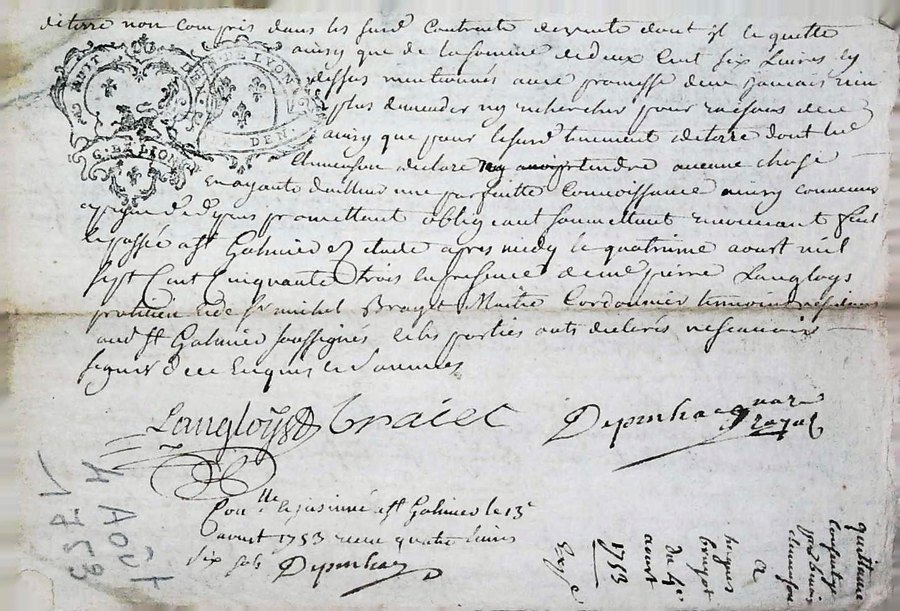 de terre non compris dans les susd. Contracts de vente dont il le quitte
ainsy que de la somme de deux Cent six Livres cy
dessus mentionnés avec promesse de ne jamais rien
plus demander ny rechercher pour raisons de ce
ainsy que pour le susd. tenement de terre dont led.
declare ny avoir prendre aucune chose
En ayant d'ailleurs une parfaitte Connoissance ainsy convenu
promettant obligeant soumettant renonçant fait
et passé a St Galmier Etude apres midy le quatrieme aoust mil
sept Cent Cinquante trois En presence de me pierre Langloys
praticien et de Sr michel Brayet Maitre Cordonnier temoins
aud. St Galmier soussignés et les parties ont declarés ne scavoir
signer de ce Enquis et Sommés
AU BUIT
DEN. LYON
G. DE LYON
DEN.
Langloys
Braiet
royal
Con.lle et insinué a St Galmier le 13e
aoust 1753 recu quatre livres
six sols
4 Août
1753
quittance
a
du 4e
aoust
1753